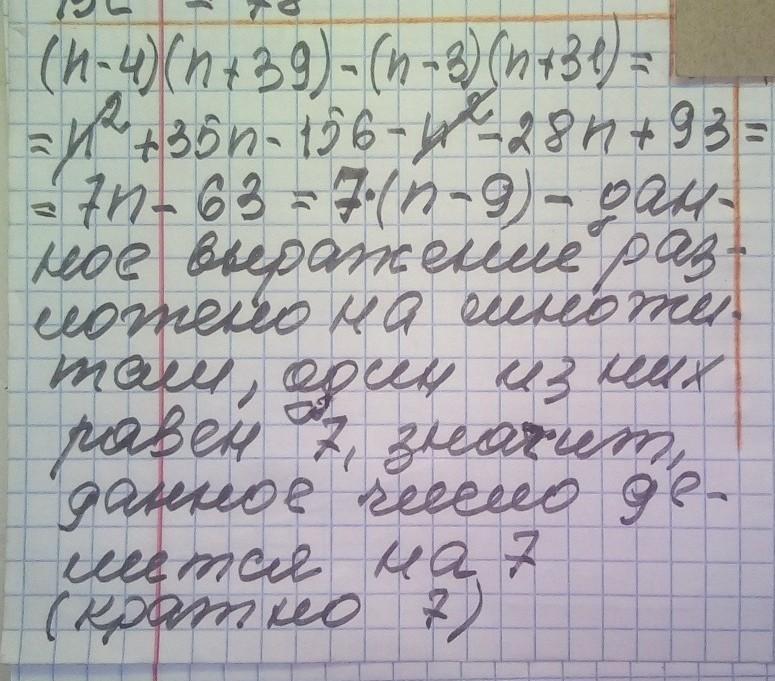 = 78
(n-4)(n+39)-(n-3)(n+31)=
=n²+35n-156-n²-28n+93=
=7n-63=7·(n-9)- дан-
ное выражение раз-
ложено на множи-
тели, один из них
равен 7, значит,
данное число де-
лится на 7
(кратно 7)